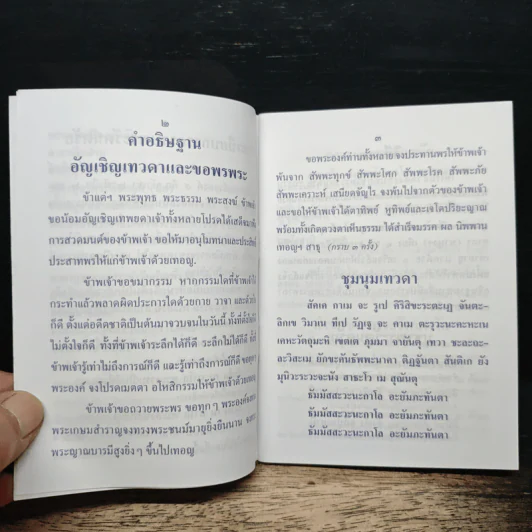 ๒
คำอธิษฐาน
อัญเชิญเทวดาและขอพรพระ
ข้าแต่ฯ พระพุทธ พระธรรม พระสงฆ์ ข้าพเจ้า
ขอน้อมอัญเชิญเทพยดาเจ้าทั้งหลายโปรดได้เสด็จมาฟัง
การสวดมนต์ของข้าพเจ้า ขอให้มาอนุโมทนาและประสิทธิ์
ประสาทพรให้แก่ข้าพเจ้าด้วยเทอญ.
ข้าพเจ้าขอขมากรรม หากกรรมใดที่ข้าพเจ้าได้
กระทำแล้วพลาดผิดประการใดด้วยกาย วาจา
ก็ดี ตั้งแต่อดีตชาติเป็นต้นมาจวบจนในวันนี้ ทั้งที่ตั้งใจก็ดี
ไม่ตั้งใจก็ดี ทั้งที่ข้าเจ้าระลึกได้ก็ดี ระลึกไม่ได้ก็ดี
ข้าพเจ้ารู้เท่าไม่ถึงการณ์ก็ดี และรู้เท่าถึงการณ์ก็ดี
พระองค์ จงโปรดเมตตา อโหสิกรรมให้ข้าพเจ้าด้วยเทอญ
ข้าพเจ้าขอถวายพระพร ขอทุก ๆ พระองค์
พระเกษมสำราญจงทรงพระชนม์มายุยิ่งยืนนาน
พระญาณบารมีสูงยิ่ง ๆ ขึ้นไปเทอญ
๓
ขอพระองค์ท่านทั้งหลาย จงประทานพรให้ข้าพเจ้า
พ้นจาก สัพพะทุกข์ สัพพะโศก สัพพะโรค สัพพะภัย
สัพพะเคราะห์ เสนียดจัญไร จงพ้นไปจากตัวของข้าพเจ้า
และขอให้ข้าพเจ้าได้ตาทิพย์ หูทิพย์และเจโตปริยะญาณ
พร้อมทั้งเกิดดวงตาเห็นธรรม ได้สำเร็จมรรค ผล นิพพาน
เทอญฯ สาธุ (กราบ ๓ ครั้ง)
ชุมนุมเทวดา
สัคเค กาเม จะ รูเป คิริสิขะระตะเฏ จันตะ-
ลิกเข วิมาเน ทีเป รัฏเฐ จะ คาเม ตะรุวะนะคะหะเน
เคหะวัตถุมหิ เขตเต ภุมมา จายันตุ เทวา ชะละถะ-
ละวิสะเม ยักขะคันธัพพะนาคา ติฏฐันตา สันติเก ยัง
มุนิวะระวะจะนัง สาธะโว เม สุณันตุ
ธัมมัสสะวะนะกาโล อะยัมภะทันตา
ธัมมัสสะวะนะกาโล อะยัมภะทันตา
ธัมมัสสะวะนะกาโล อะยัมภะทันตา